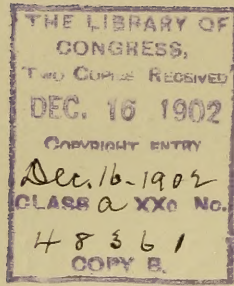 THE LIBRARY OF
CONGRESS,
TWO COPIES RECEIVED
DEC. 16 1902
COPYRIGHT ENTRY
Dec. 16-1902
CLASS a XXc No.
48361
COPY B.